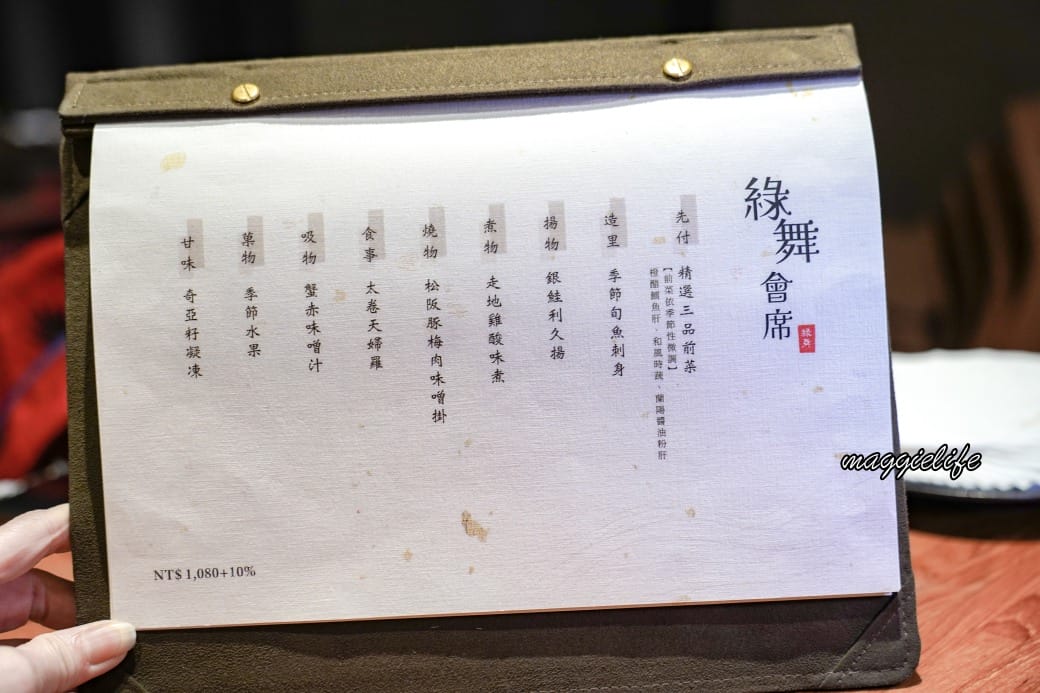 綠舞
會席
綠舞
先付 精選三品前菜
【前菜依季節性微調】
橙醋鱈魚肝、和風時蔬、蘭陽醬油粉肝
造里 季節旬魚刺身
揚物 銀鮭利久揚
煮物 走地雞酸味煮
燒物 松阪豚梅肉味噌掛
食事 太卷天婦羅
吸物 蟹赤味噌汁
菓物 季節水果
甘味 奇亞籽凝凍
NT$ 1,080+10%
maggielife